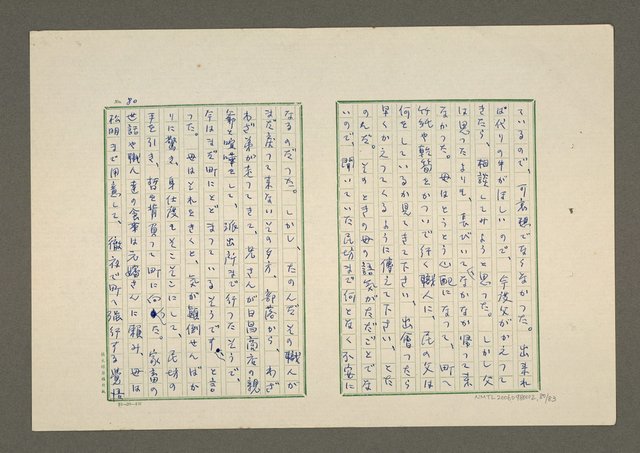 ているので、可哀想でならなかった。出来れ
ば代りの牛がほしいので、今度父がかえって
きたら、相談してみようと思った。しかし父
は思ったよりも、長びいてなかなか帰って来
なかった。母はとうとう心配になって、町へ
竹紙や乾筍をかついで行く職人に、民の父は
何をしているか見てきて下さい、出會ったら
早くかえってくるように傳えて下さい、とた
のんだ。そのときの母の語気がただごとでな
いので、聞いていた民坊まで何となく不安に
なるのだった。しかし、たのんだその職人が
まだ戻って来ないその夕方、部落から、わざ
わざ弟が走って来て、兄さんが日昌商店の親
爺と喧嘩をして、派出所まで行ったそうで、
今はまだ町にとどまっているそうです、と言
った。母はそれをきくと、気が顚倒せんばか
りに驚き、身仕度もそこそこにして、民坊の
手を引き、哲を背負って町に向った。家畜の
世話や職人達の食事は元嬸さんに頼み、母は
松明まで用意して、徹夜で町へ強行する覚悟
80
NMTL20060980012,80/83